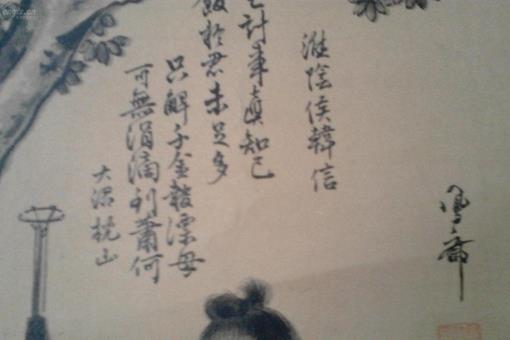 淮陰侯韓信
計事真知己
飯於君未足多
只解千金報漂母
可無涓滴到蕭何
大沼枕山